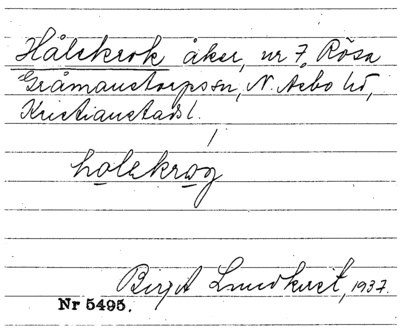 Hålekrok åker, nr 7, Rösa
Gråmanstorpssn, N. Åsbo hd,
Kristianstads l.
holekrog
Birgit Lundkvist, 1937.
Nr 5495.